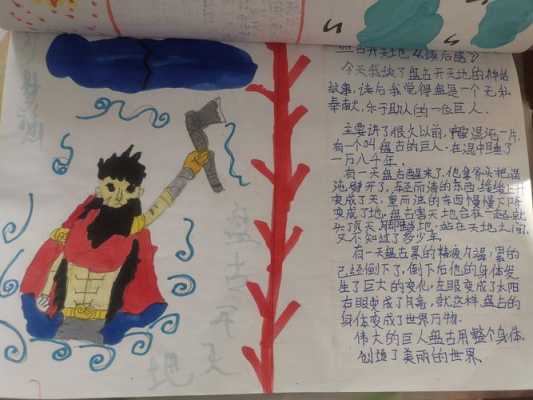 盘古开天地《读后感》
今天我读了盘古开天地的神话
故事,读后我觉得盘是一个无私
奉献,乐于助人的一位巨人.
主要讲了很久以前,混沌一片,
有一个叫盘古的巨人.在混中睡了
一万八千年.
有一天盘古醒来了.他拿斧头把混
沌劈开了,轻而清的东西,缓缓上升
变成了天.重而浊的东西慢慢下降
变成了地.盘古害天地合在一起,就
头顶天,脚踏地.站在天地之间,
又不知过了多少年.
有一天盘古累的精疲力竭.累的
己经倒下了,倒下后他的身体发
生了巨大的变化.左眼变成了太阳
右眼变成了月亮.就这样,盘古的
身体变成了世界万物.
伟大的巨人盘古用整个身体,
创造了美丽的世界.
盘古开天
地